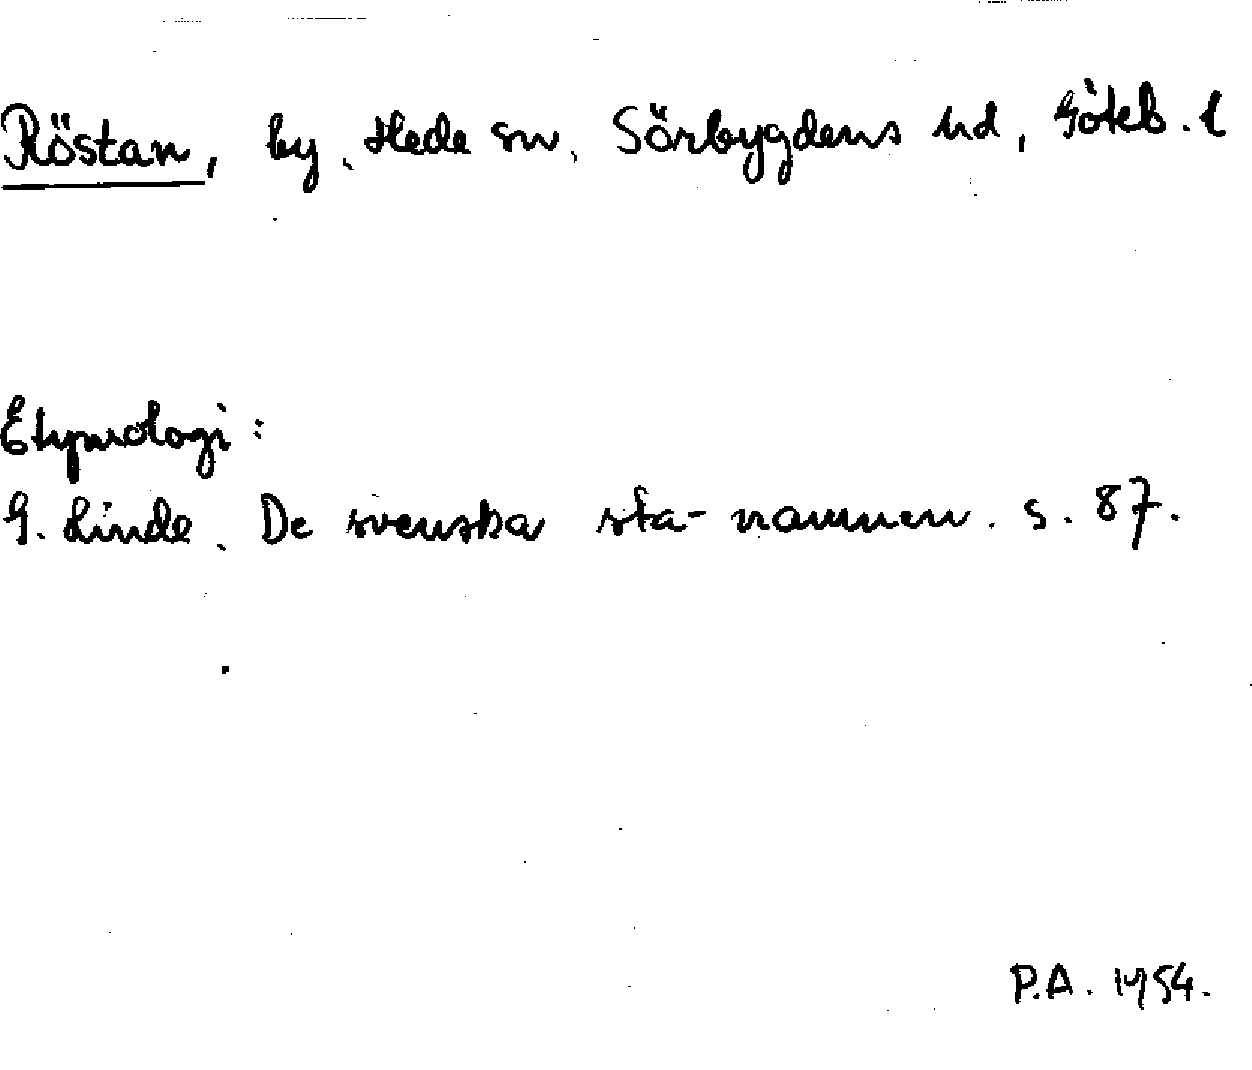 Röstan, by, Hede sn, Sörbygdens hd, Göteb. l
Etymologi:
G. Linde, De svenska sta-namnen. s. 87.
P.A. 1954.